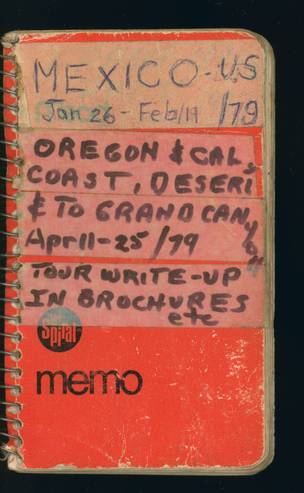 MEXICO-U.S
Jan 26 - Feb/19 /79
OREGON & CAL,
COAST, DESERT
& TO GRAND CANY
April 11-25/79
TOUR WRITE-UP
IN BROCHURES
etc
Spiral
memo